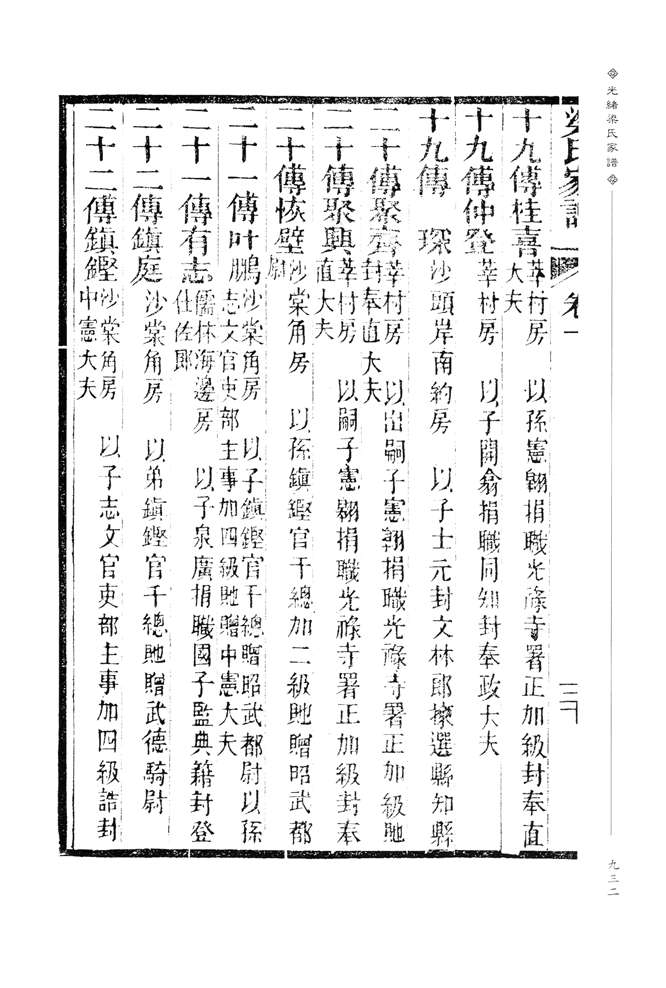 光緒梁氏家譜
九三二
梁氏家譜 卷一
十九傳桂喜 莘村房 以孫憲翱捐職光祿寺署正加級封奉直
大夫
十九傳仲登 莘村房 以子開翕捐職同知封奉政大夫
十九傳 琛 沙頭岸南約房 以子士元封文林郎揀選縣知縣
二十傳聚齊 莘村房 以出嗣子憲翱捐職光祿寺署正加級貤
封奉直大夫
二十傳聚興 莘村房 以嗣子憲翱捐職光祿寺署正加級封奉
直大夫
二十傳恢壁 沙棠角房 以孫鎮鏗官千總加二級貤贈昭武都
尉
二十一傳叶鵬 沙棠角房 以子鎮鏗官千總贈昭武都尉以孫
志文官吏部主事加四級貤贈中憲大夫
二十一傳有志 儒林海邊房 以子泉廣捐職國子監典籍封登
仕佐郎
二十二傳鎮庭 沙棠角房 以弟鎮鏗官千總貤贈武德騎尉
二十二傳鎮鏗 沙棠角房 以子志文官吏部主事加四級誥封
中憲大夫